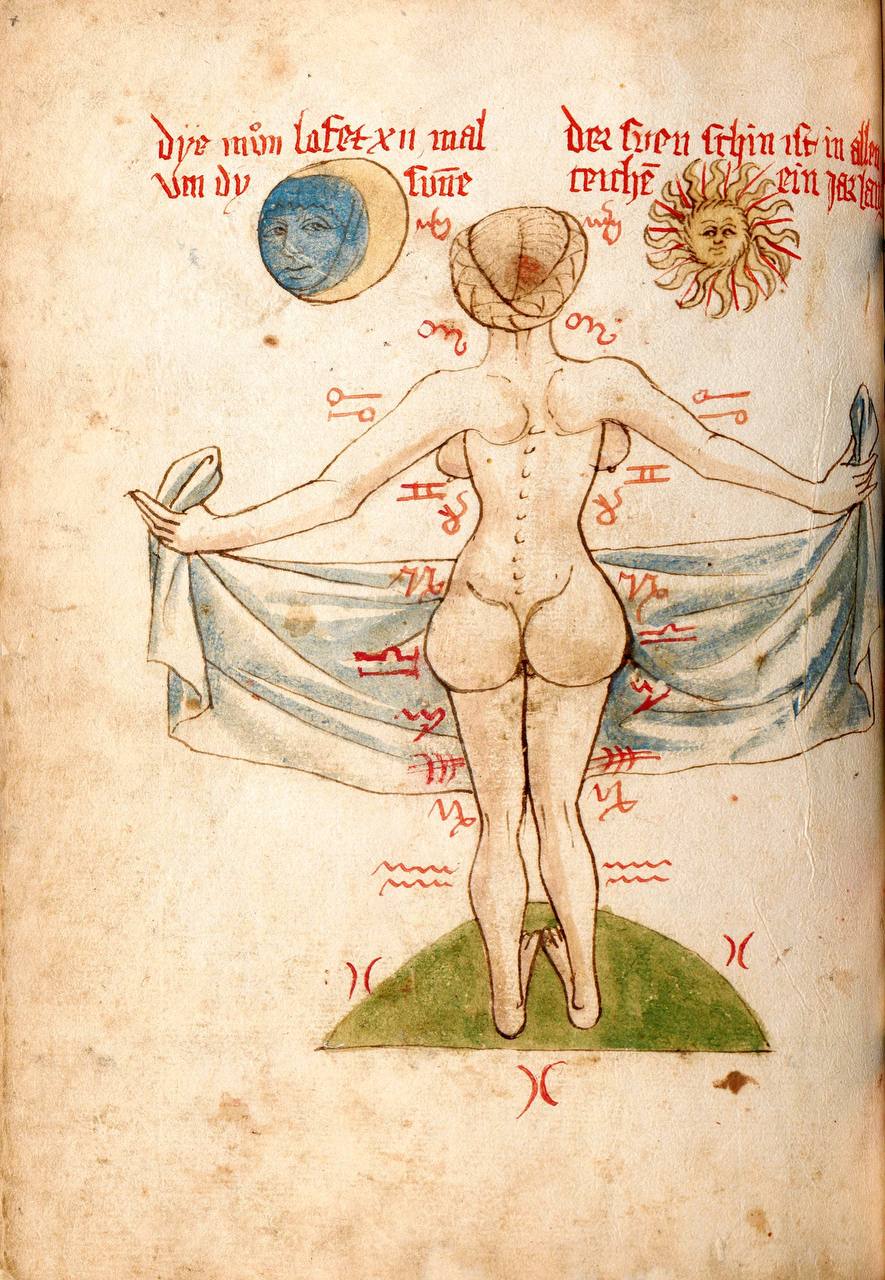 dye mon lofet xii mal
vm dy sūne
der sven schin ist in allen
teichē ein jar lang